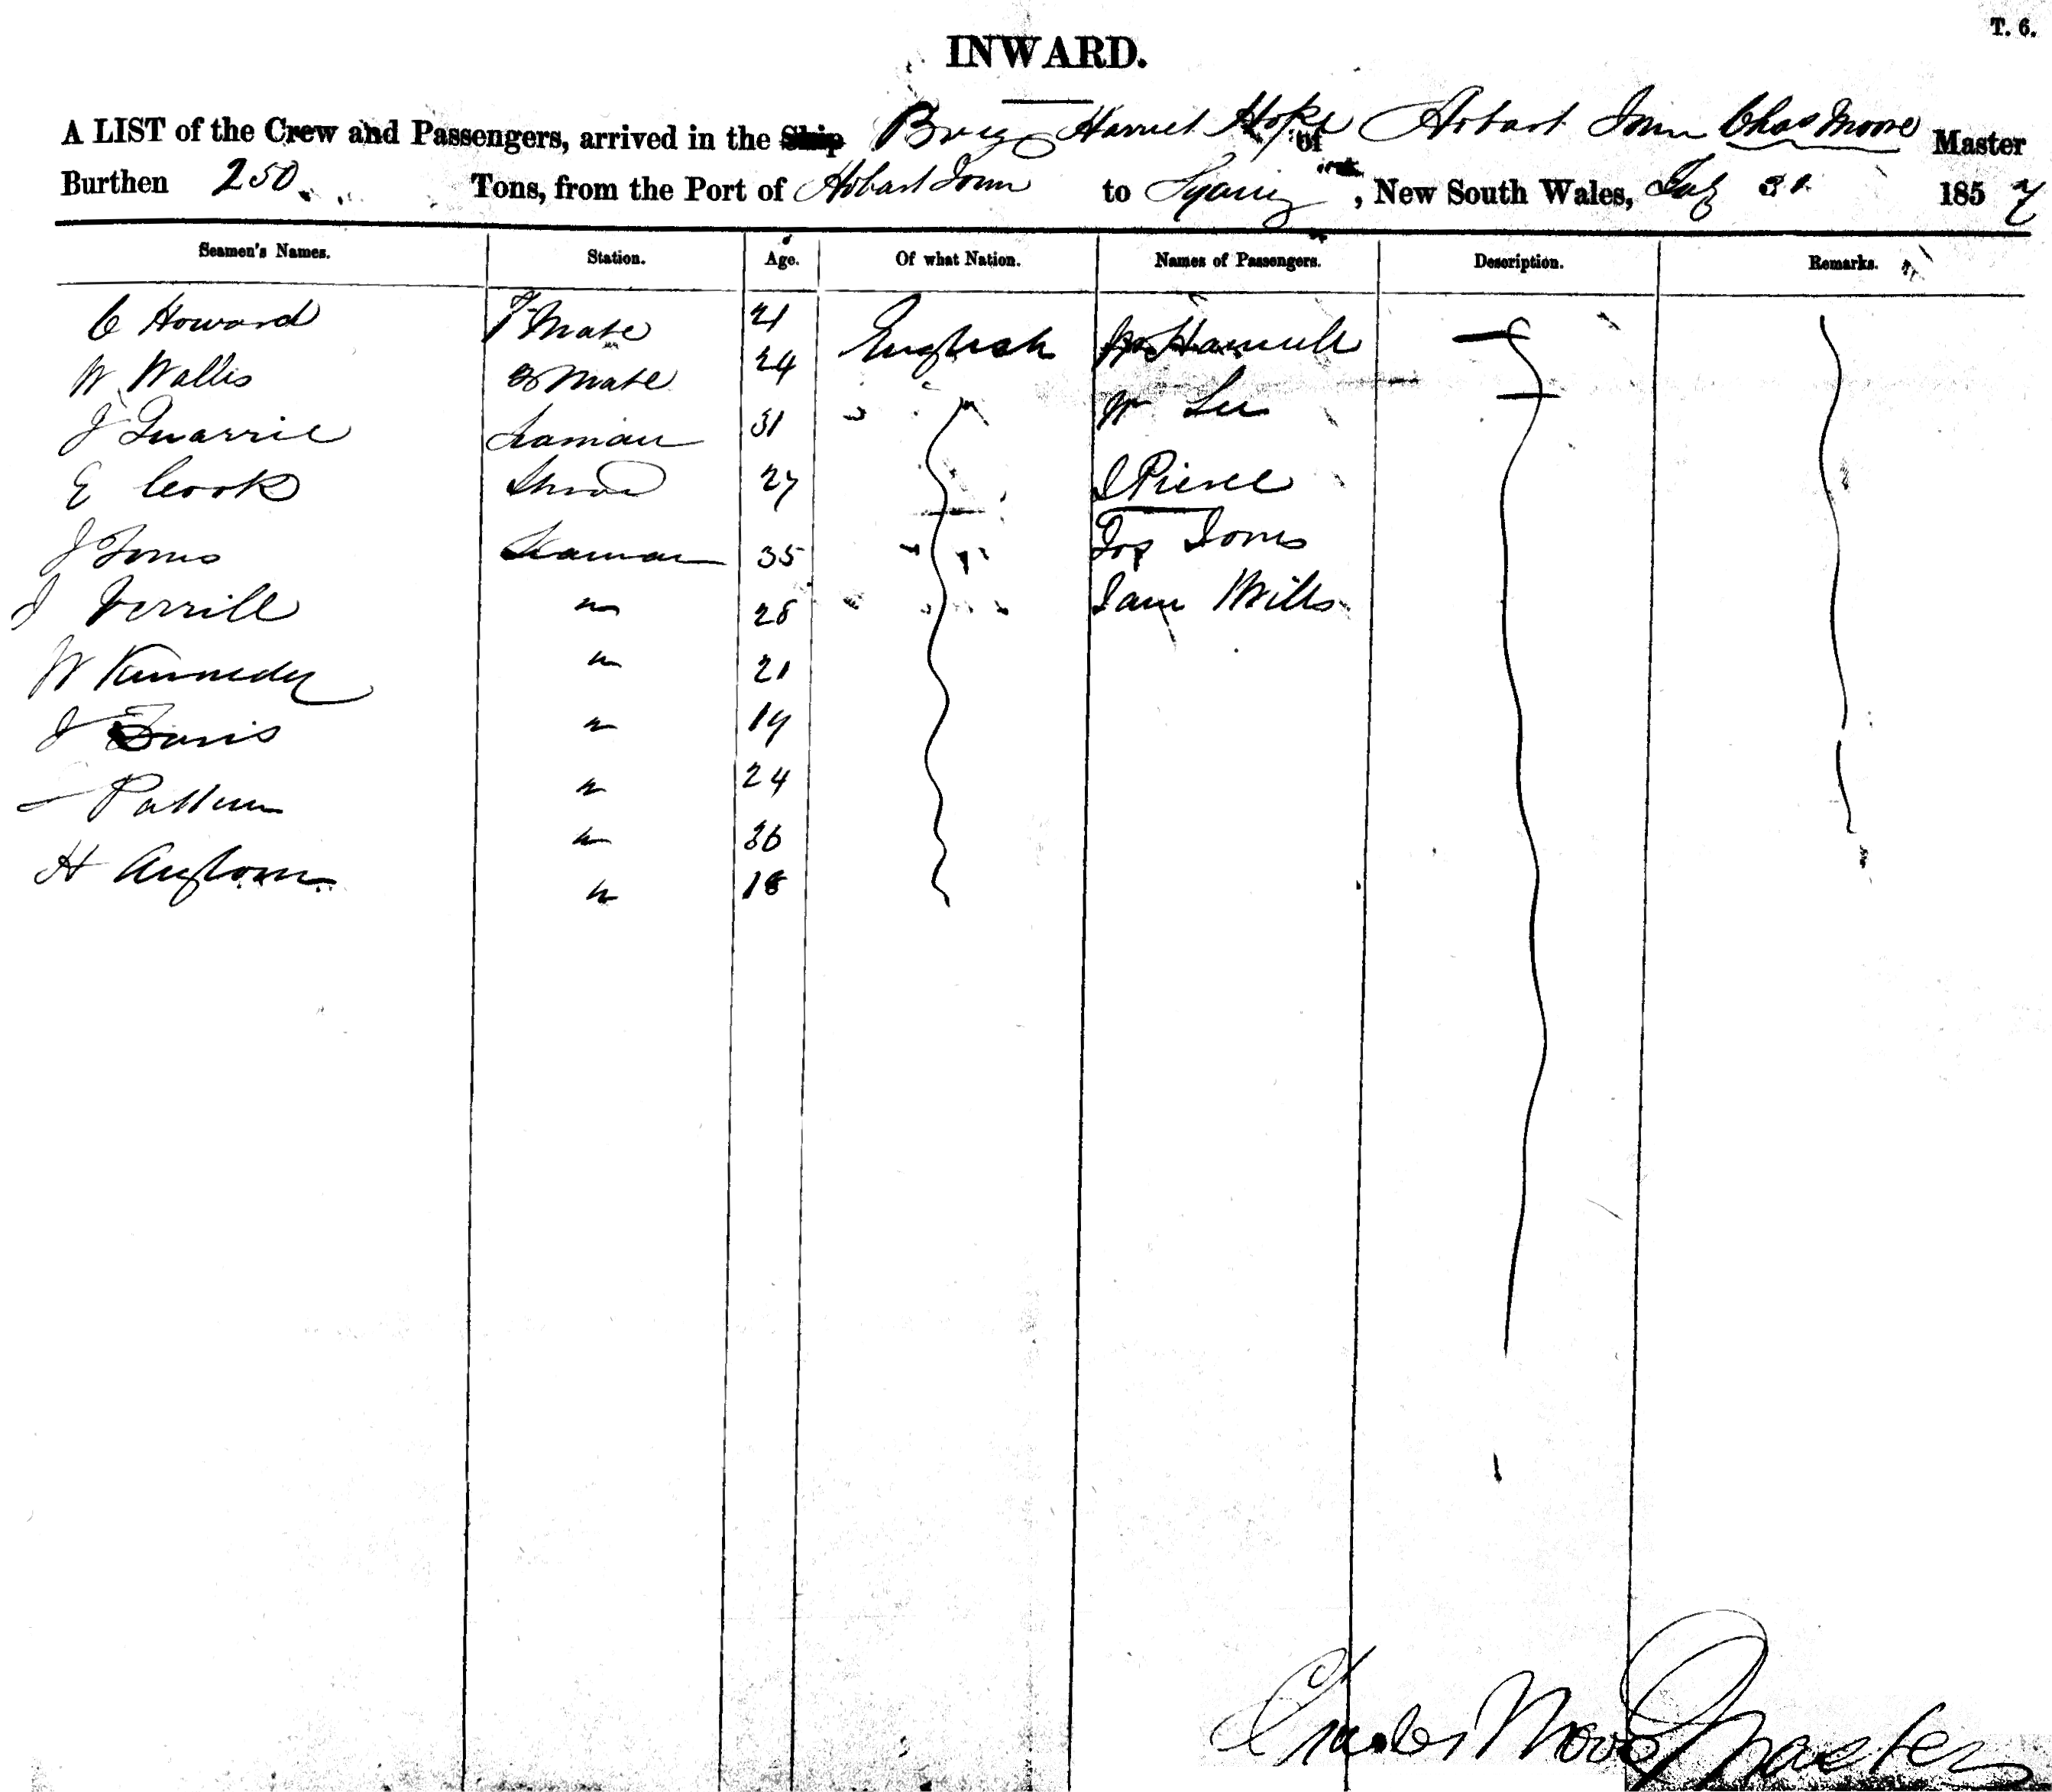 T. 6.
INWARD.
A LIST of the Crew and Passengers, arrived in the Ship Brig Harriet Hope of Hobart Town Chas Moore Master
Burthen 250 Tons, from the Port of Hobart Town to Sydney, New South Wales, July 31 1857
Seamen's Names. Station. Age. Of what Nation. Names of Passengers. Description. Remarks.
C Howard Mate 21 English
W Wallis 2 Mate 24 W Lee
J Quarrie Seaman 31
E Cook 27 J Pierce
J Jones Seaman 35 Jos Jones
J Verrill " 28 Sam Mills
W Kennedy " 21
J Davis " 19
" 24
H " 36
" 18
Charles Moore Master